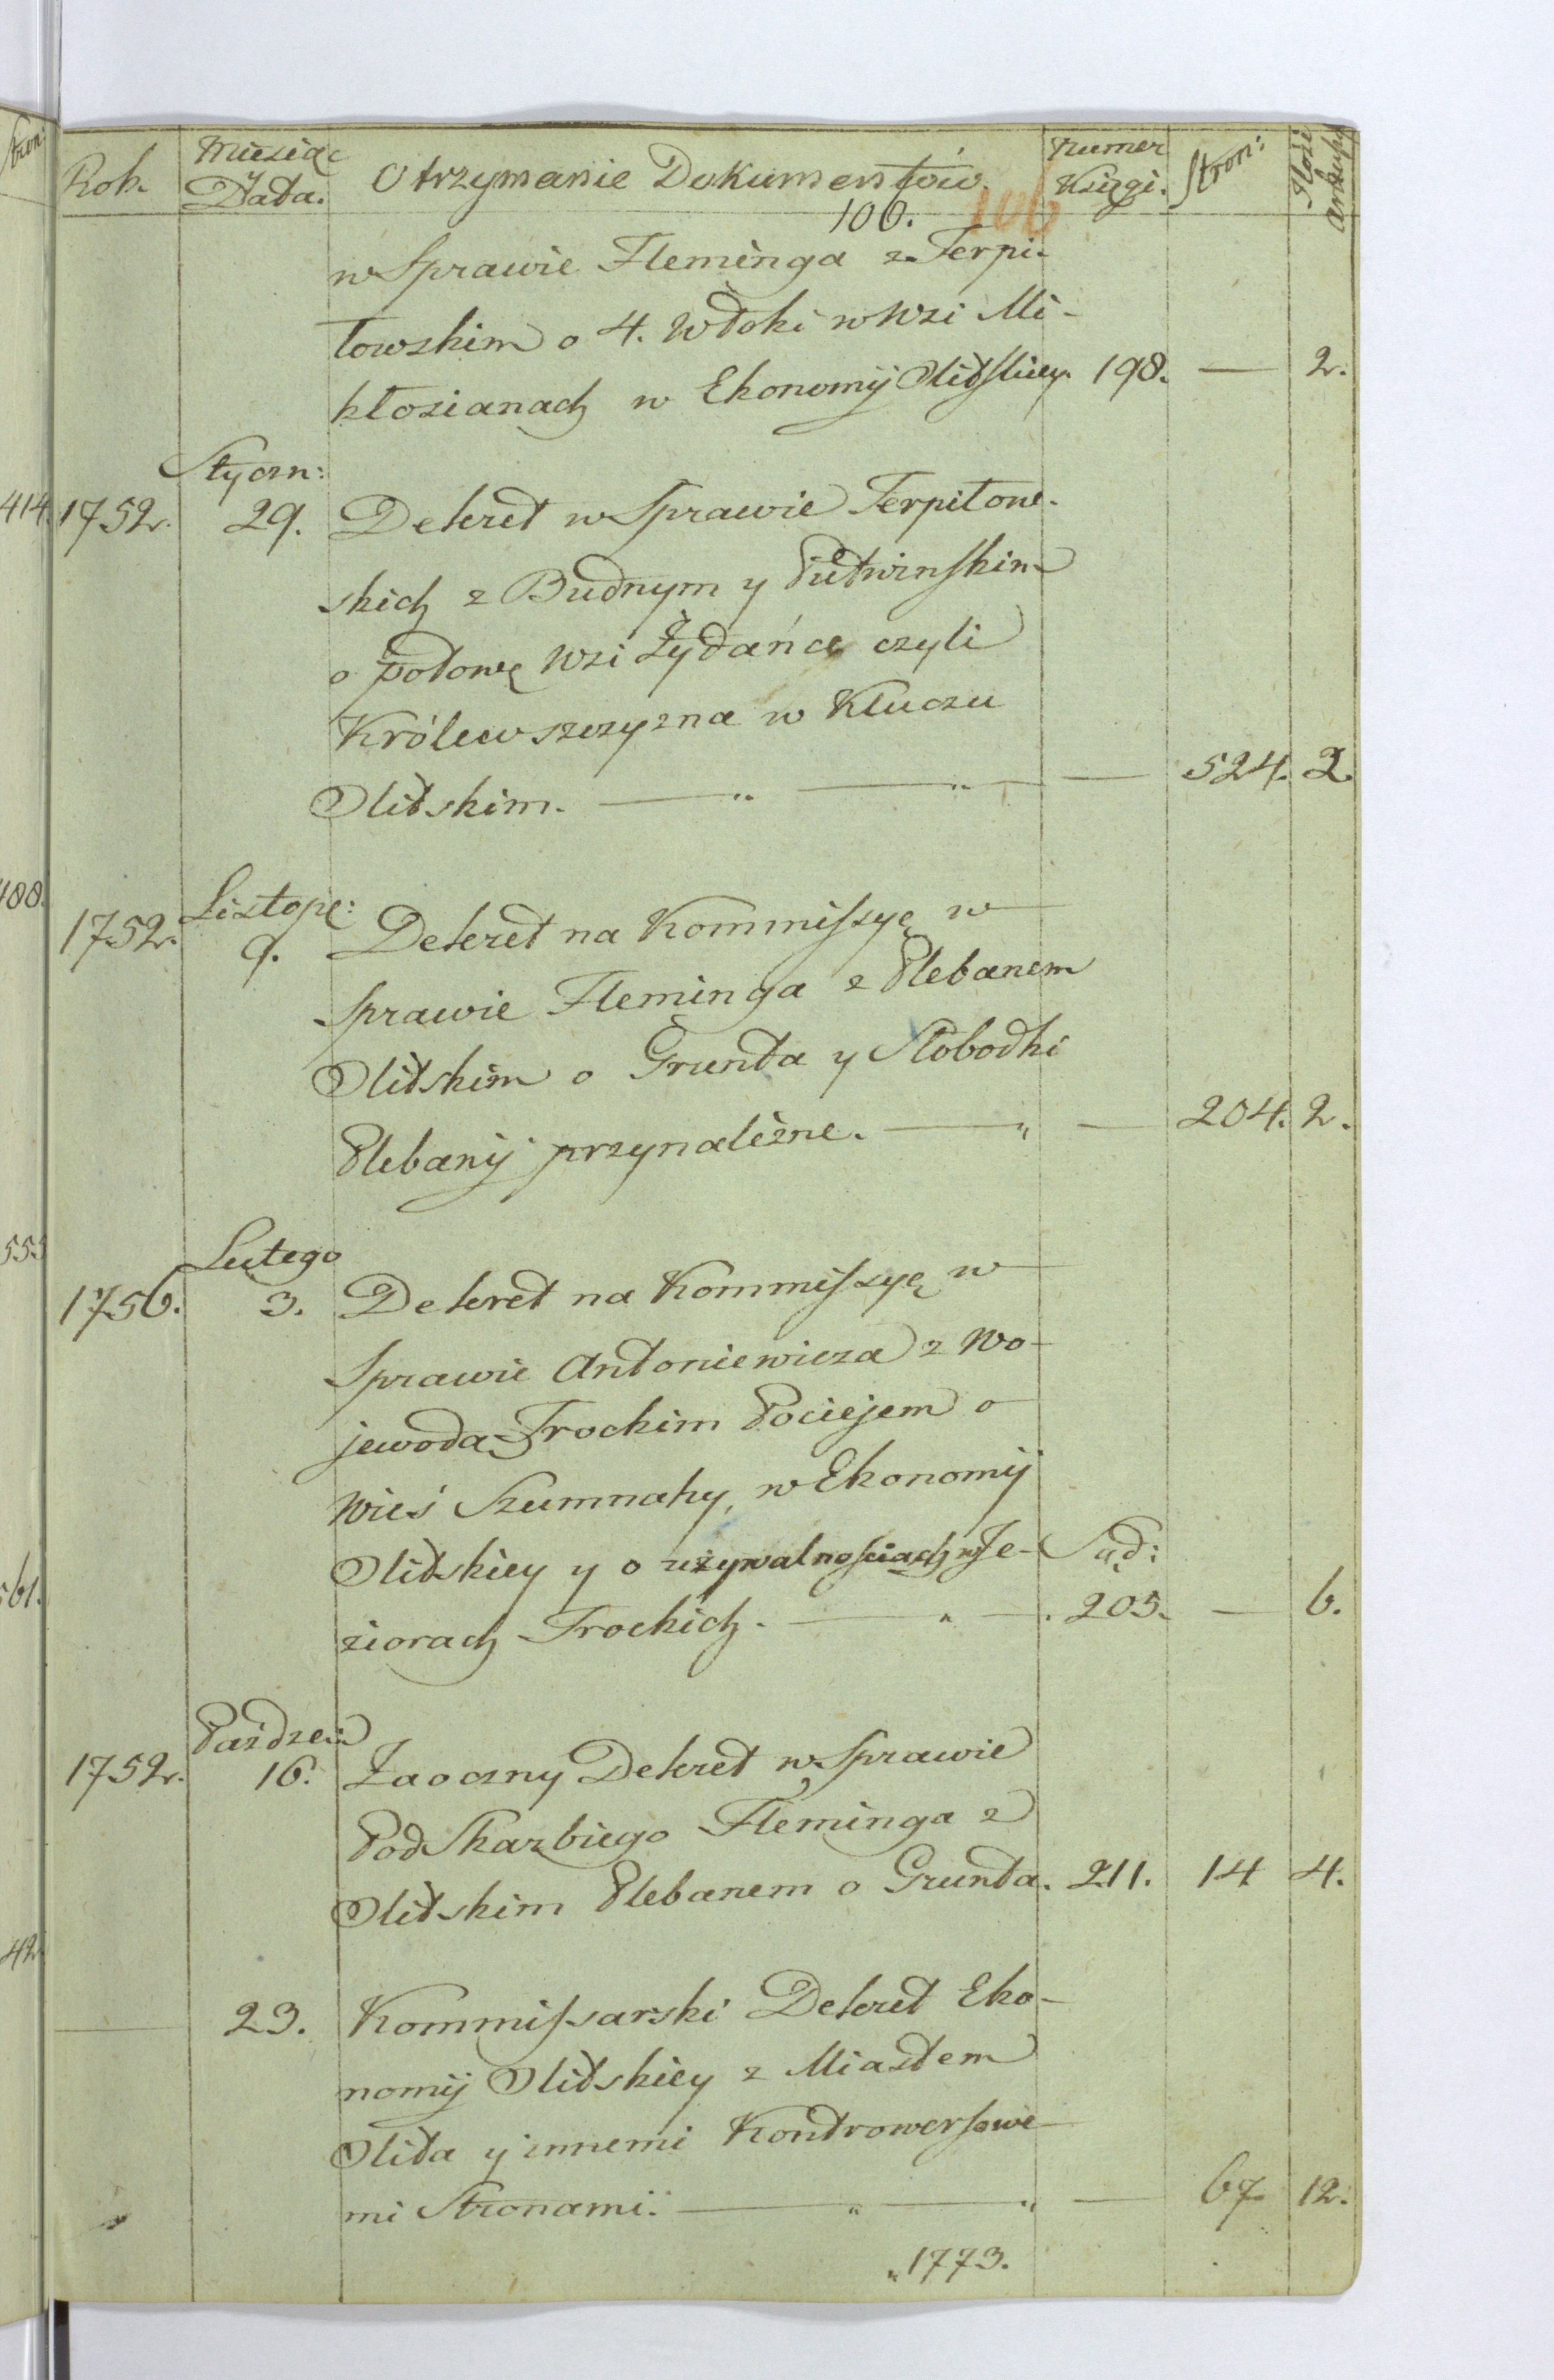 Rok. Miesiąc y Data. Otrzymanie Dokumentów. Numer Księgi. Stron: Ilość arkuszy
106. 106
w Sprawie Fleminga z Terpi-
łowskim o 4. Włoki w Wsi Mi-
kłosianach w Ekonomij Olitskiey. 198. — 2.
Styczn:
1752. 29. Dekret w Sprawie Terpiłow-
skich z Budnym y Putwinskim
o połowę Wsi Żydańce czyli
Królewszczyzna w Kluczu
Olitskim. — " — " — — 524. 2.
Listop:
1752. 9. Dekret na Kommissyę w
Sprawie Fleminga z Plebanem
Olitskim o Grunta y Słobodki
Plebanij przynależne. — " — 204. 2.
Lutego
1756. 3. Dekret na Kommissyę w
Sprawie Antoniewicza z Wo-
jewodą Trockim Pociejem o
Wieś Szumnaky, w Ekonomij
Olitskiey y o używalnościach w Je- Sąd:
ziorach Trockich. — " — . 205. — 6.
Paździer:
1752. 16. Zaoczny Dekret w Sprawie
PodSkarbiego Fleminga z
Olitskim Plebanem o Grunta. 211. 14 4.
— 23. Kommissarski Dekret Eko-
nomij Olitskiey z Miastem
Olita y innemi Kontrowersowe-
mi Stronami. — " — " — 67 12.
" 1773.